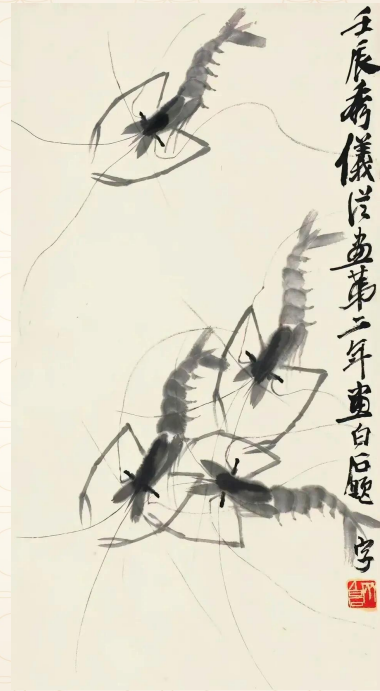 壬辰秀儀從畫第二年畫白石題字